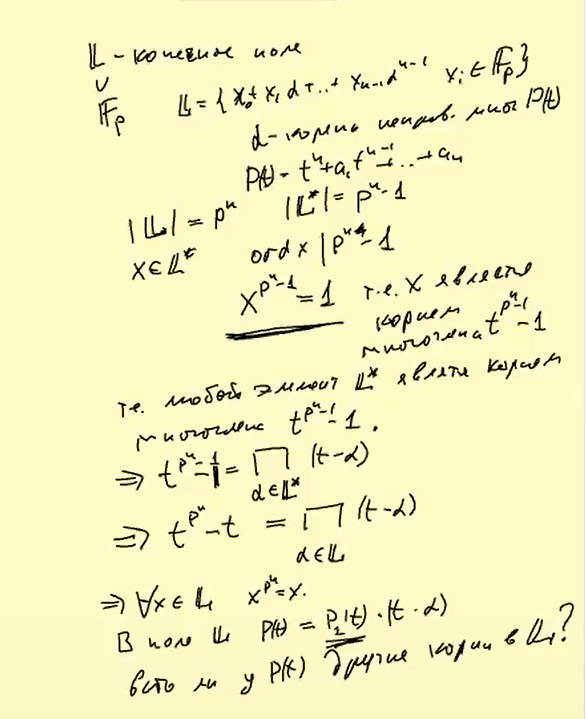 𝕃 - конечное поле
∪
𝔽ₚ 𝕃 = { x₀ + x₁α + .. + xₙ₋₁αⁿ⁻¹ xᵢ ∈ 𝔽ₚ }
α - корень неприв. мног P(t)
P(t) = tⁿ + a₁tⁿ⁻¹ + .. + aₙ
|𝕃| = pⁿ |𝕃*| = pⁿ - 1
x ∈ 𝕃* ord x | pⁿ - 1
x^{pⁿ-1} = 1 т.е. x является
корнем
многочлена t^{pⁿ-1} - 1
т.е. любой элемент 𝕃* являете корнем
многочлена t^{pⁿ-1} - 1.
⇒ t^{pⁿ-1} - 1 = ∏ (t-α)
α∈𝕃*
⇒ t^{pⁿ} - t = ∏ (t-α)
α∈𝕃
⇒ ∀x ∈ 𝕃 x^{pⁿ} = x.
В поле 𝕃 P(t) = P₂(t) · (t - α)
Есть ли у P(t) другие корни в 𝕃?